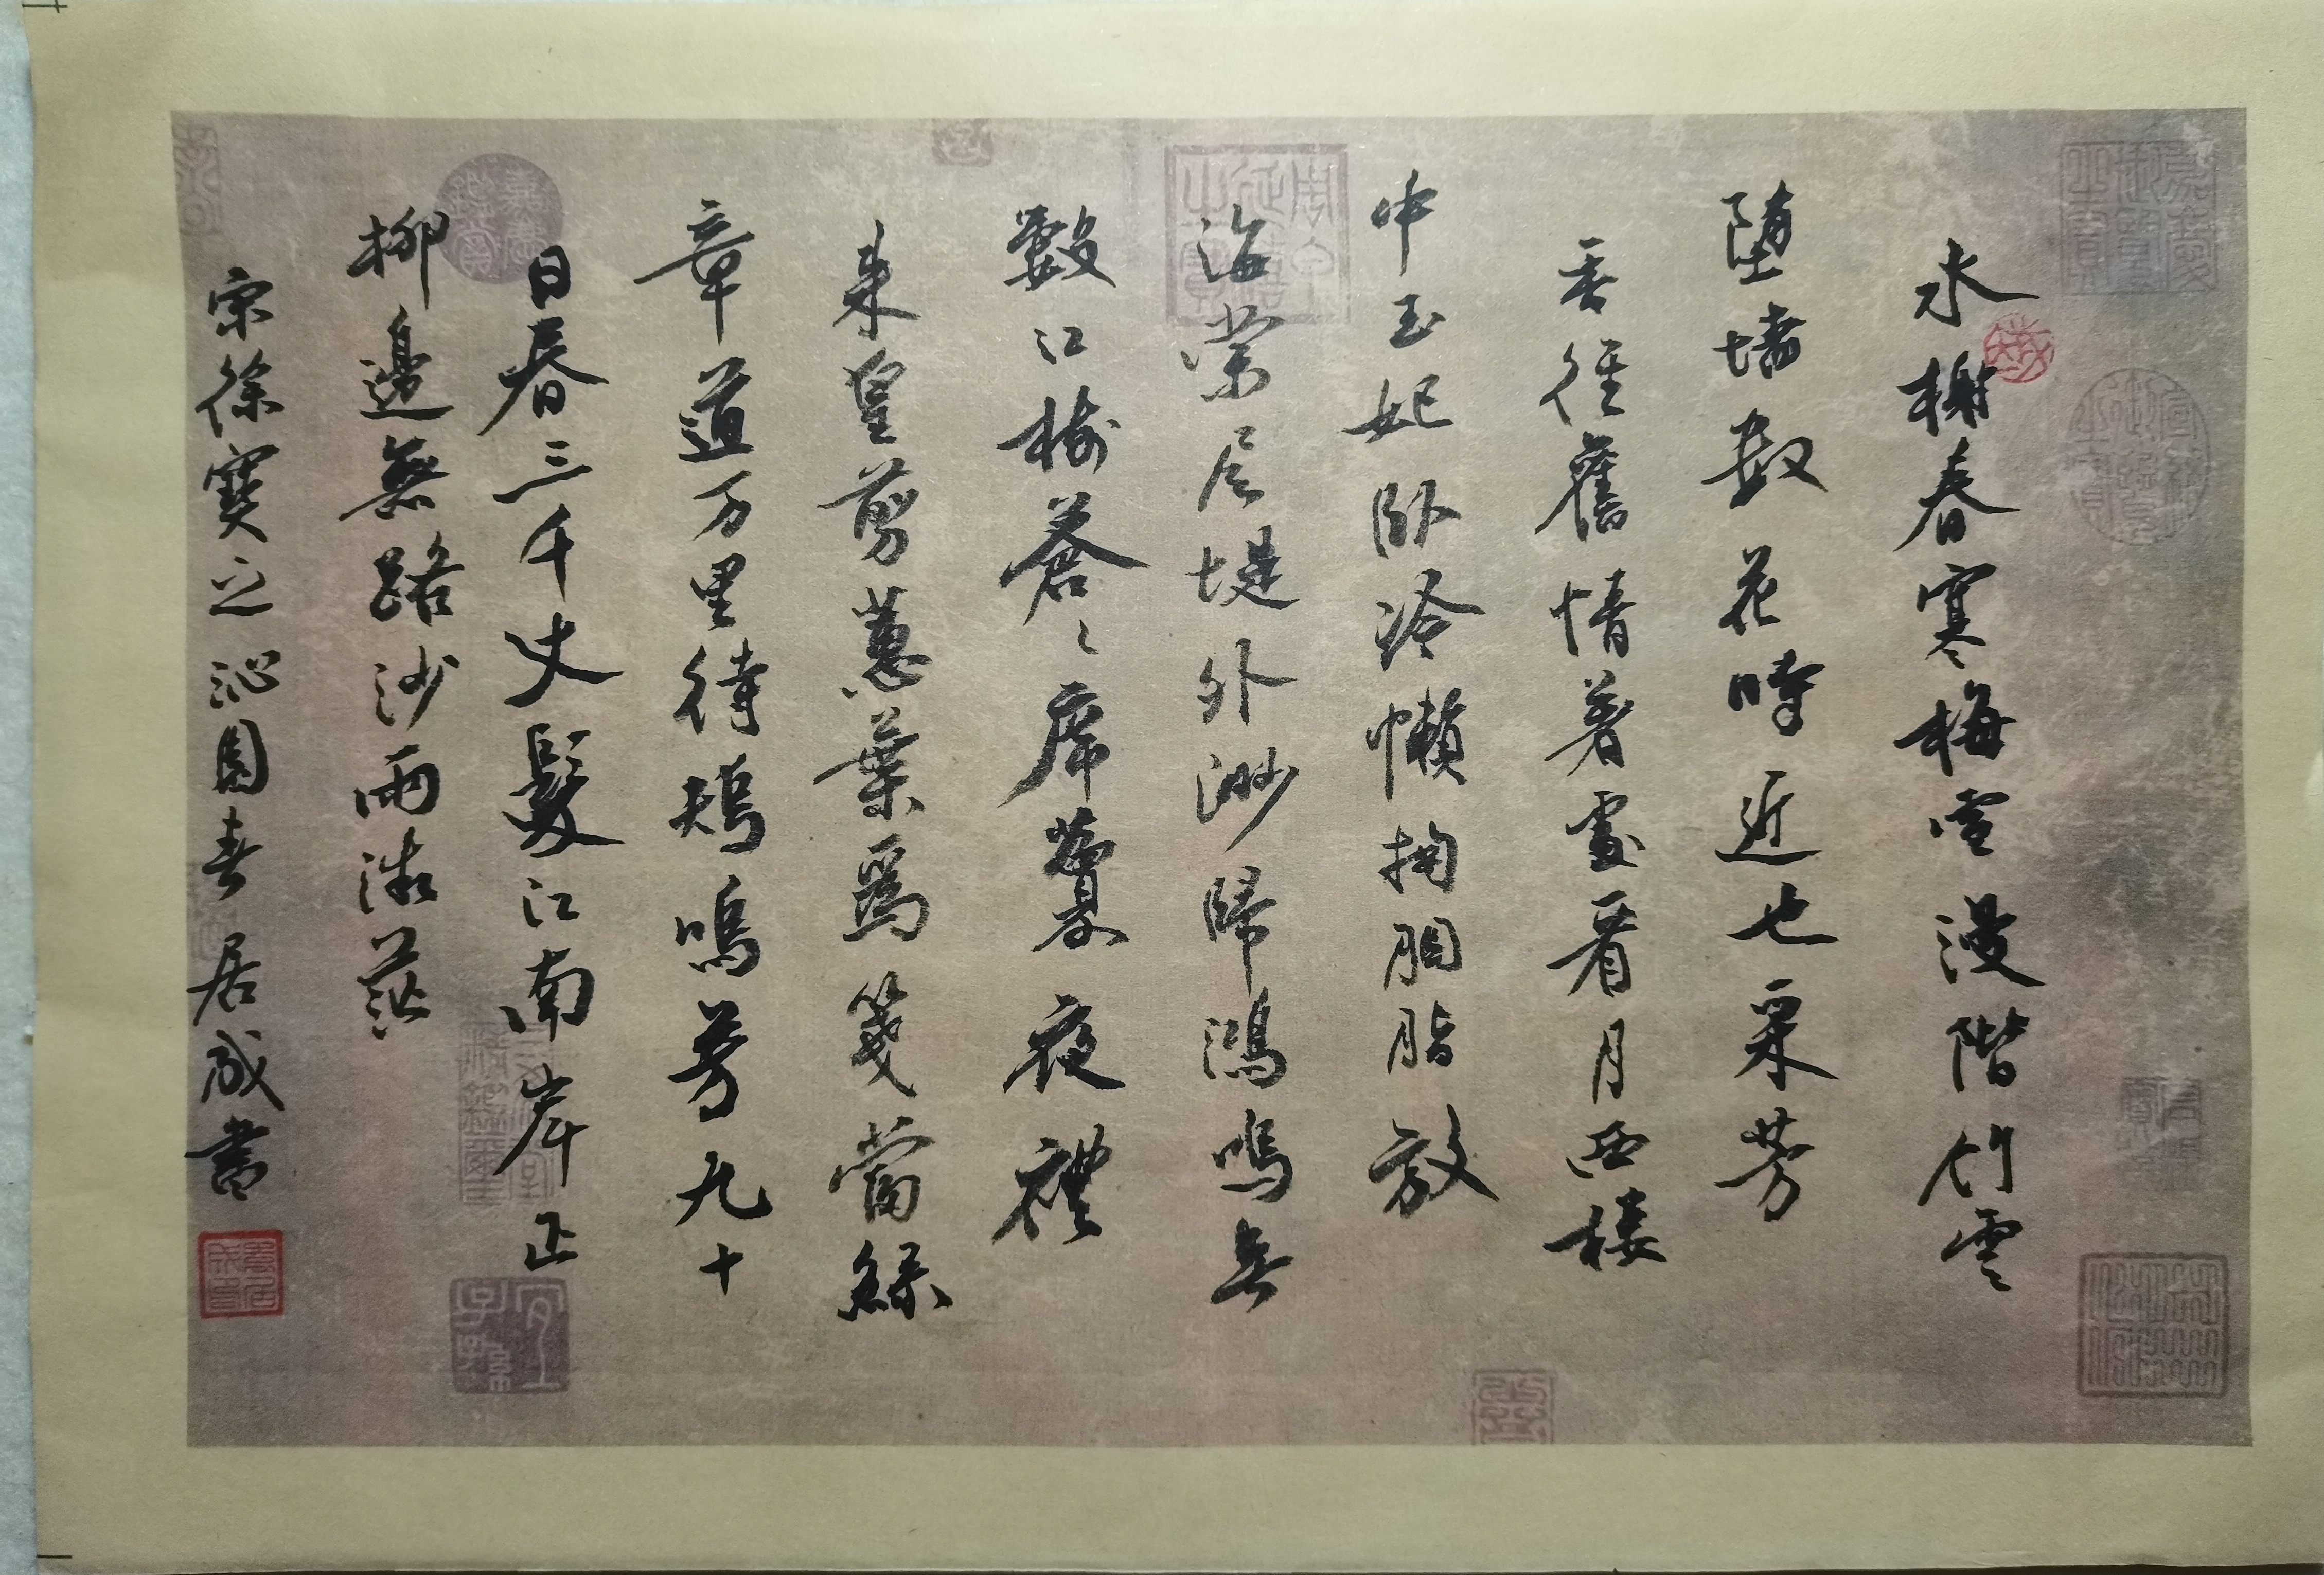 水榭春寒梅雪漫階竹雲
墮墻数花時近也采芳
香徑舊情著處看月西樓
中玉妃臥冷懶掬胭脂放
海棠尽堤外渺歸鴻鳴無
數江樹蒼〻席幕夜禮
来皇剪蕙葉為箋當綠
章道万里待鴆鳴芳九十
日春三千丈髮江南岸正
柳邊無路沙雨漵茫
宗徐寶之沁園春居成書